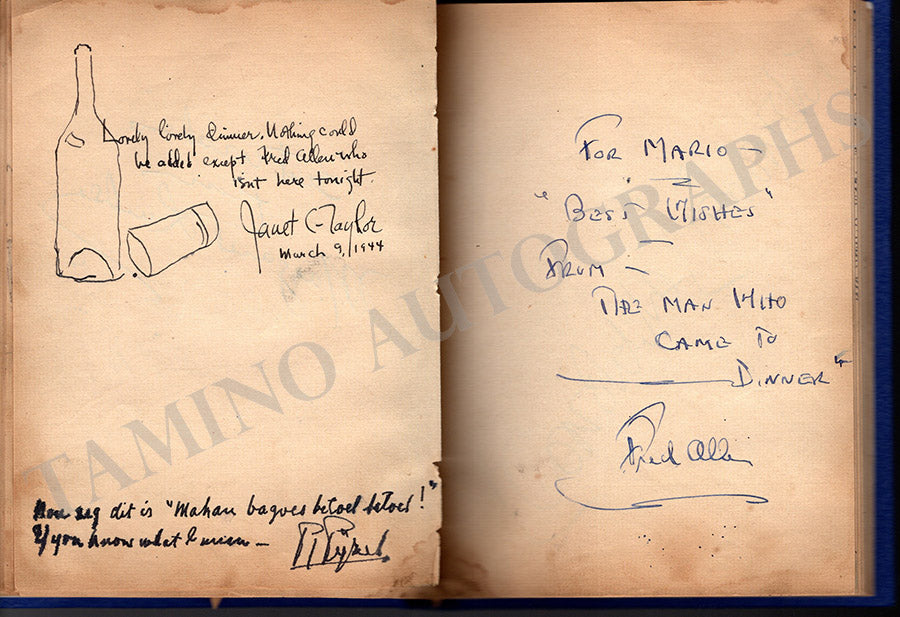 Lovely lovely dinner. Nothing could
be added except Fred Allen who
isnt here tonight.
Janet Taylor
March 9, 1944
Nou zeg dit is "Mahan bagoes betoel betoel!"
If you know what I mean —
FOR MARIO —
"BEST WISHES"
FROM —
THE MAN WHO
CAME TO
DINNER"
Fred Allen
TAMINO AUTOGRAPHS